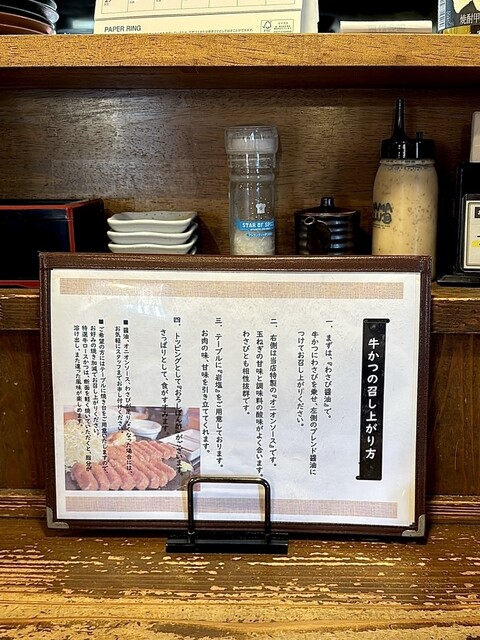 PAPER RING
FSC
STAR OF
牛かつの召し上がり方
一、まずは、『わさび醤油』で。
牛かつにわさびを乗せ、左側のブレンド醤油に
つけてお召し上がりください。
二、右側は当店特製の『オニオンソース』です。
玉ねぎの甘味と調味料の酸味がよく合います。
わさびとも相性抜群です。
三、テーブルに『岩塩』をご用意しております。
お肉の味、甘味を引き立ててくれます。
四、トッピングとして『おろしぽん酢』がございます。
さっぱりとして、食がすすみます。
■醤油、オニオンソース、わさびが足りなくなった場合には、
お気軽にスタッフまでお申し付けください。
■ご希望の方にはテーブルに焼き台をご用意いたしますので、
お好みの焼き加減でお召し上がりください。
特選牛ロースかつは、断面を軽く焼いていただくと、脂分が
溶け出し、また違った風味が楽しめます。